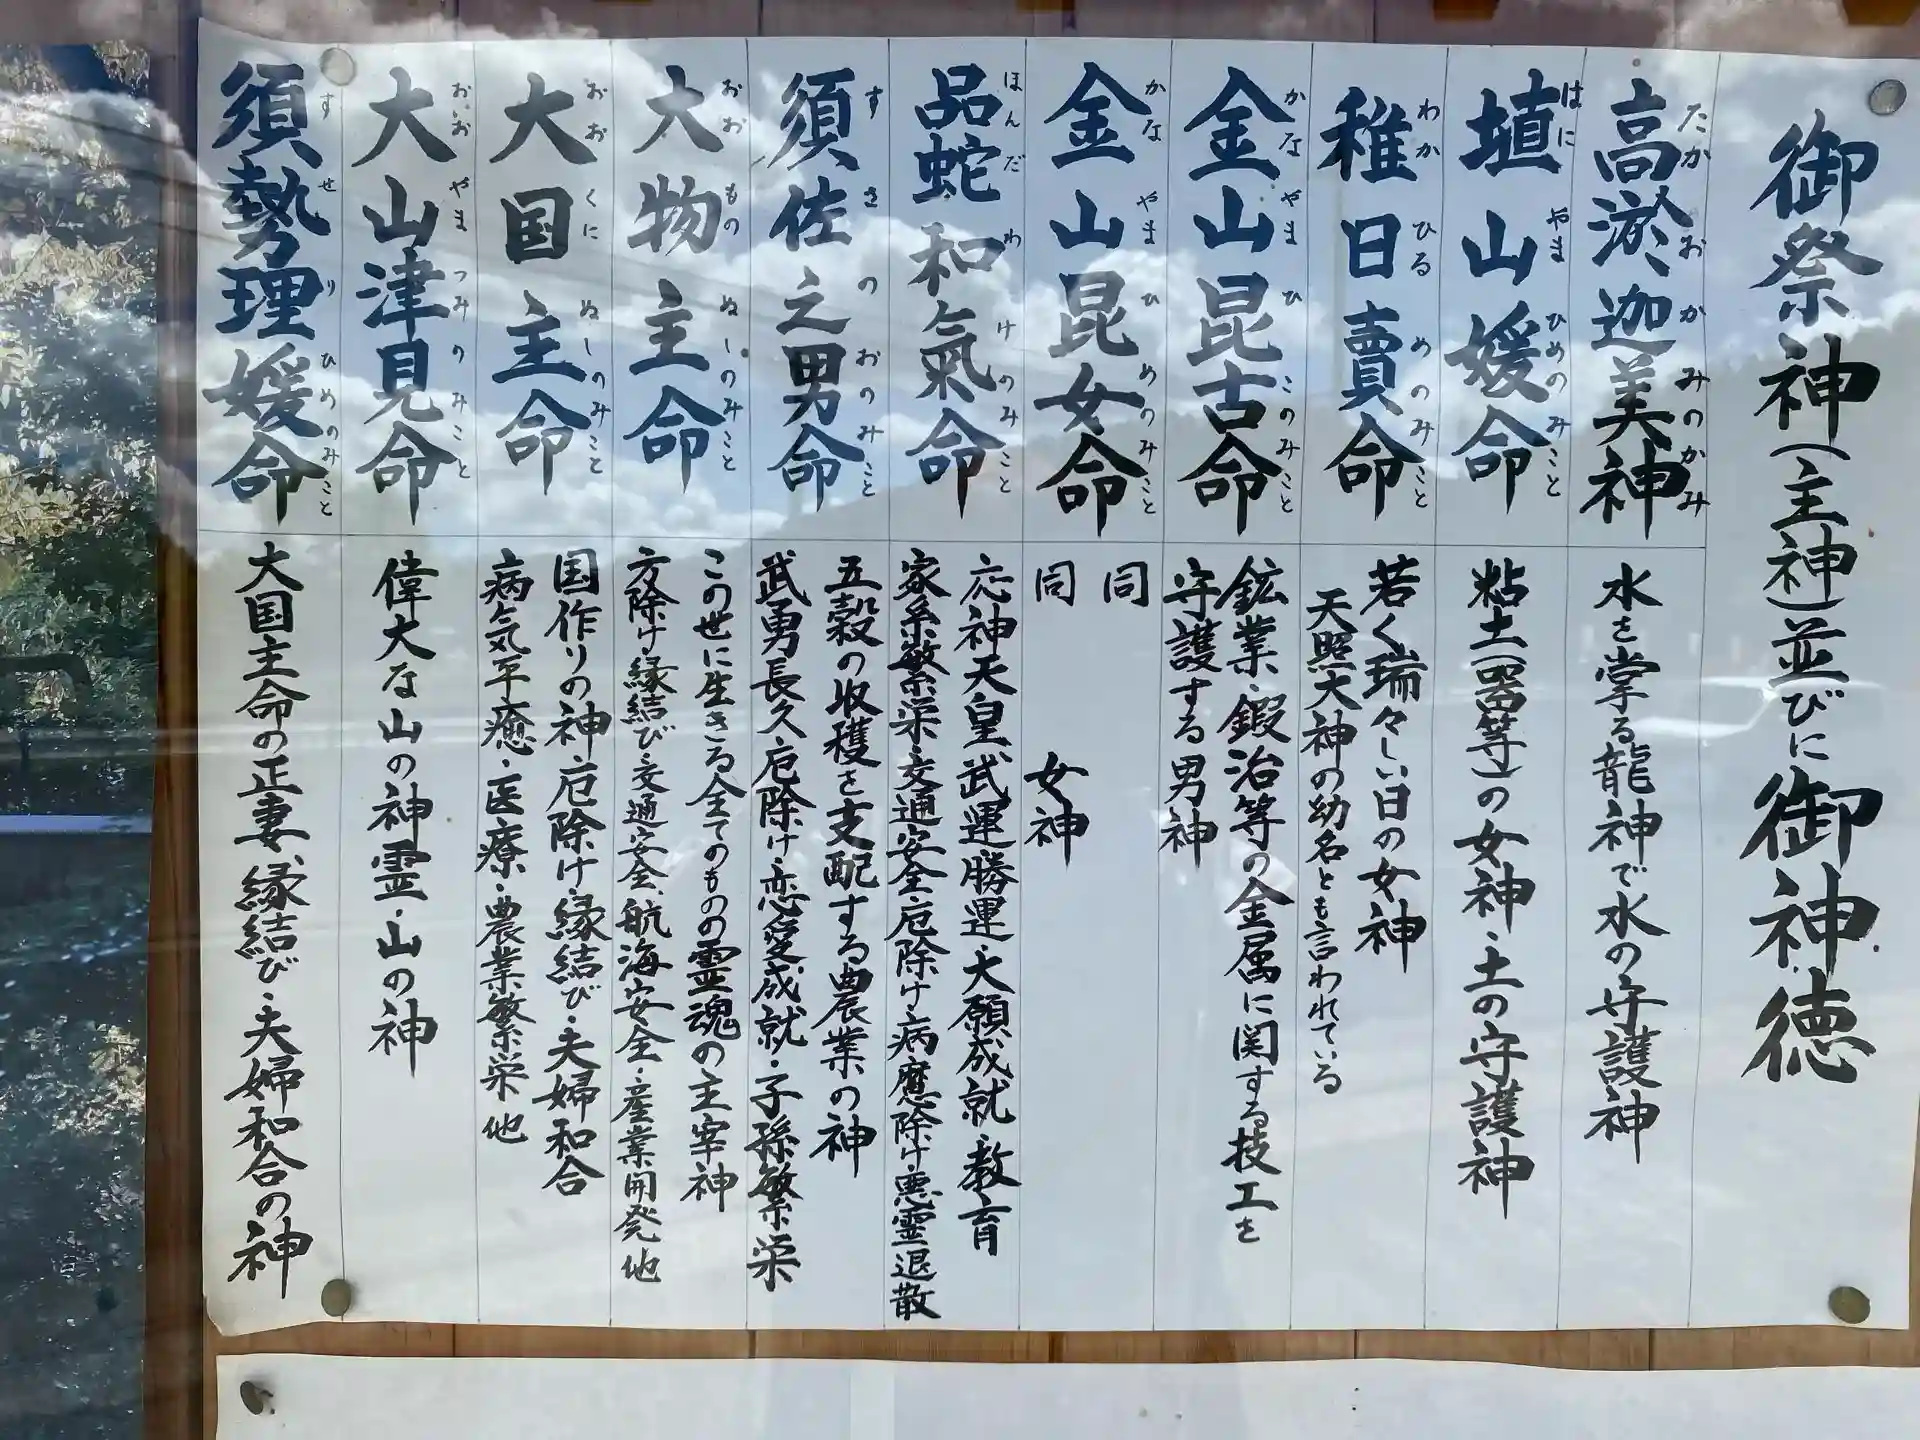 御祭神(主神)並びに御神徳
高淤迦美神
たかおかみのかみ
水を掌る龍神で水の守護神
埴山媛命
はにやまひめのみこと
粘土(器等)の女神・土の守護神
稚日賣命
わかひるめのみこと
若く瑞々しい日の女神
天照大神の幼名とも言われている
金山昆古命
かなやまひこのみこと
鉱業・鍛冶等の金属に関する技工を
守護する男神
金山昆女命
かなやまひめのみこと
同
同 女神
品蛇和氣命
ほんだわけのみこと
応神天皇、武運勝運・大願成就・教育
家系繁栄・交通安全・厄除け・病魔除け・悪霊退散
須佐之男命
すさのおのみこと
五穀の収穫を支配する農業の神
武勇長久・厄除け・恋愛成就・子孫繁栄
大物主命
おおものぬしのみこと
この世に生きる全てのものの霊魂の主宰神
方除け・縁結び・交通安全、航海安全・産業開発他
大国主命
おおくにぬしのみこと
国作りの神・厄除け・縁結び・夫婦和合
病気平癒・医療・農業繁栄他
大山津見命
おおやまつみのみこと
偉大な山の神霊・山の神
須勢理媛命
すせりひめのみこと
大国主命の正妻、縁結び・夫婦和合の神